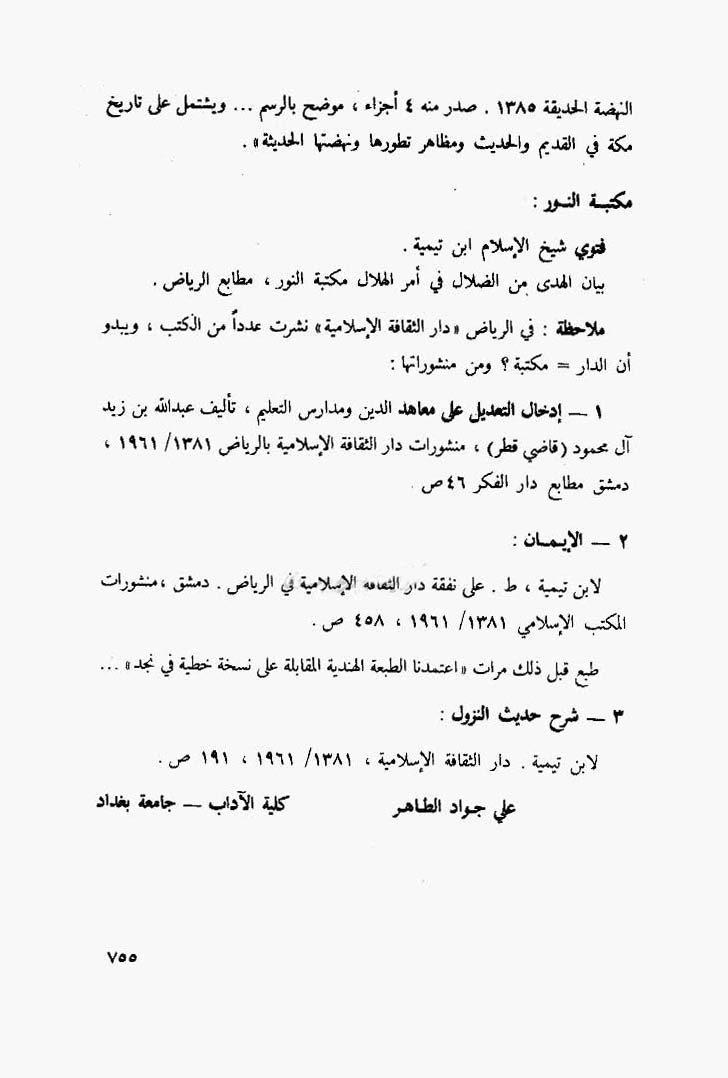 النهضة الحديقة ١٣٨٥ . صدر منه ٤ أجزاء ، موضح بالرسم ... ويشتمل على تاريخ
مكة في القديم والحديث ومظاهر تطورها ونهضتها الحديثة» .
مكتبـة النـور :
فتوي شيخ الإسلام ابن تيمية .
بيان الهدى من الضلال في أمر الهلال مكتبة النور ، مطابع الرياض .
ملاحظة : في الرياض «دار الثقافة الإسلامية» نشرت عدداً من الكتب ، ويبدو
أن الدار = مكتبة ؟ ومن منشوراتها :
١ — إدخال التعديل على معاهد الدين ومدارس التعليم ، تأليف عبدالله بن زيد
آل محمود (قاضي قطر) ، منشورات دار الثقافة الإسلامية بالرياض ١٣٨١/ ١٩٦١ ،
دمشق مطابع دار الفكر ٤٦ ص .
٢ — الإيـمـان :
لابن تيمية ، ط . على نفقة دار الثقافة الإسلامية في الرياض . دمشق ،منشورات
المكتب الإسلامي ١٣٨١/ ١٩٦١ ، ٤٥٨ ص .
طبع قبل ذلك مرات «اعتمدنا الطبعة الهندية المقابلة على نسخة خطية في نجد» ...
٣ — شرح حديث النزول :
لابن تيمية . دار الثقافة الإسلامية ، ١٣٨١/ ١٩٦١ ، ١٩١ ص .
علي جـواد الطـاهـر كلية الآداب — جامعة بغداد
٧٥٥